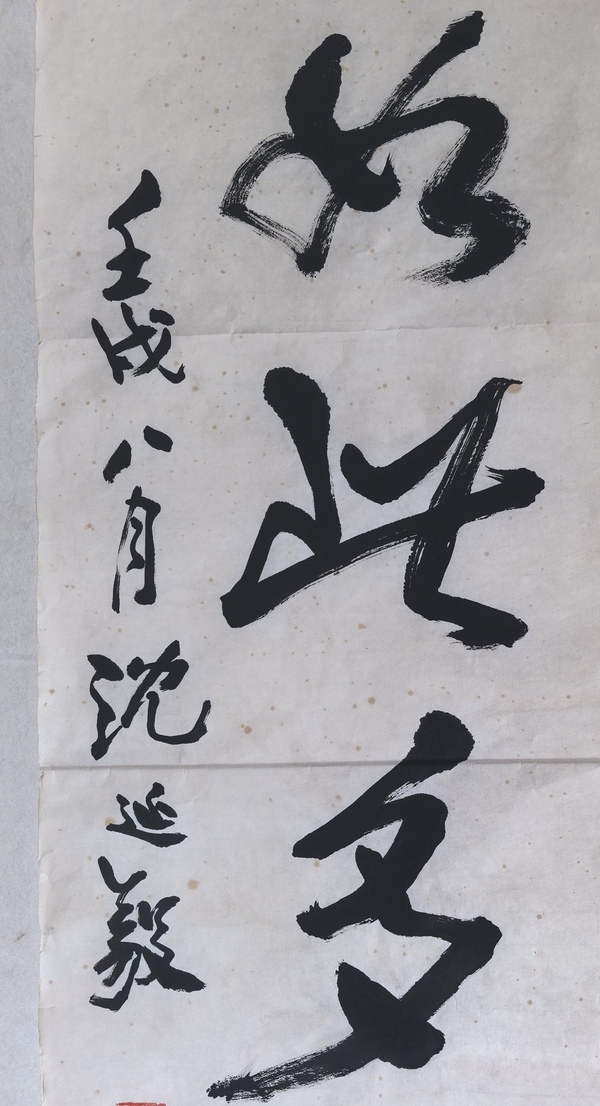 如此多
壬戌八月沈延毅